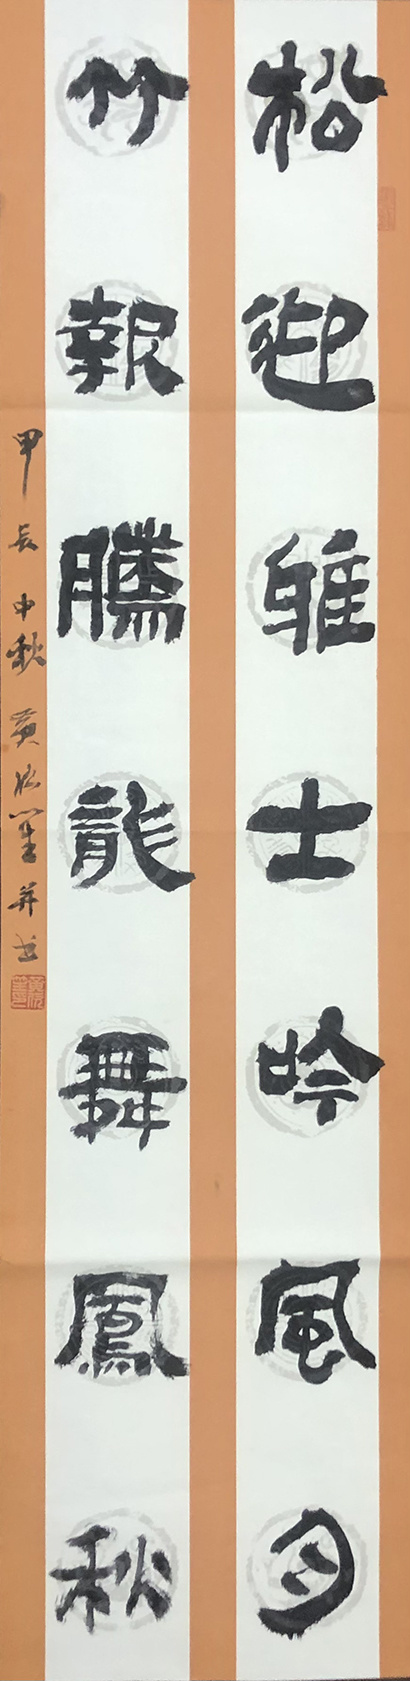 松迎雅士吟風月
竹報騰龍舞鳳秋
甲辰中秋 黄 并书